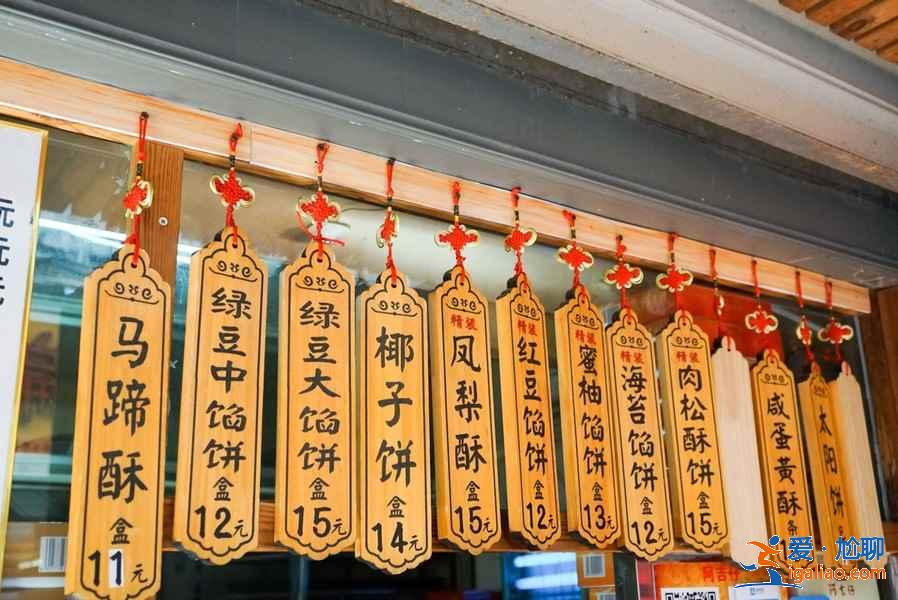 元
元
元
马蹄酥
盒
11元
绿豆中馅饼
盒
12元
绿豆大馅饼
盒
15元
椰子饼
盒
14元
精装
凤梨酥
盒
15元
精装
红豆馅饼
盒
12元
精装
蜜柚馅饼
盒
13元
精装
海苔馅饼
盒
12元
精装
肉松酥饼
盒
15元
咸蛋黄酥
条
太阳饼
阿吉仔
阿吉仔
爱·尴聊
igaliao.com